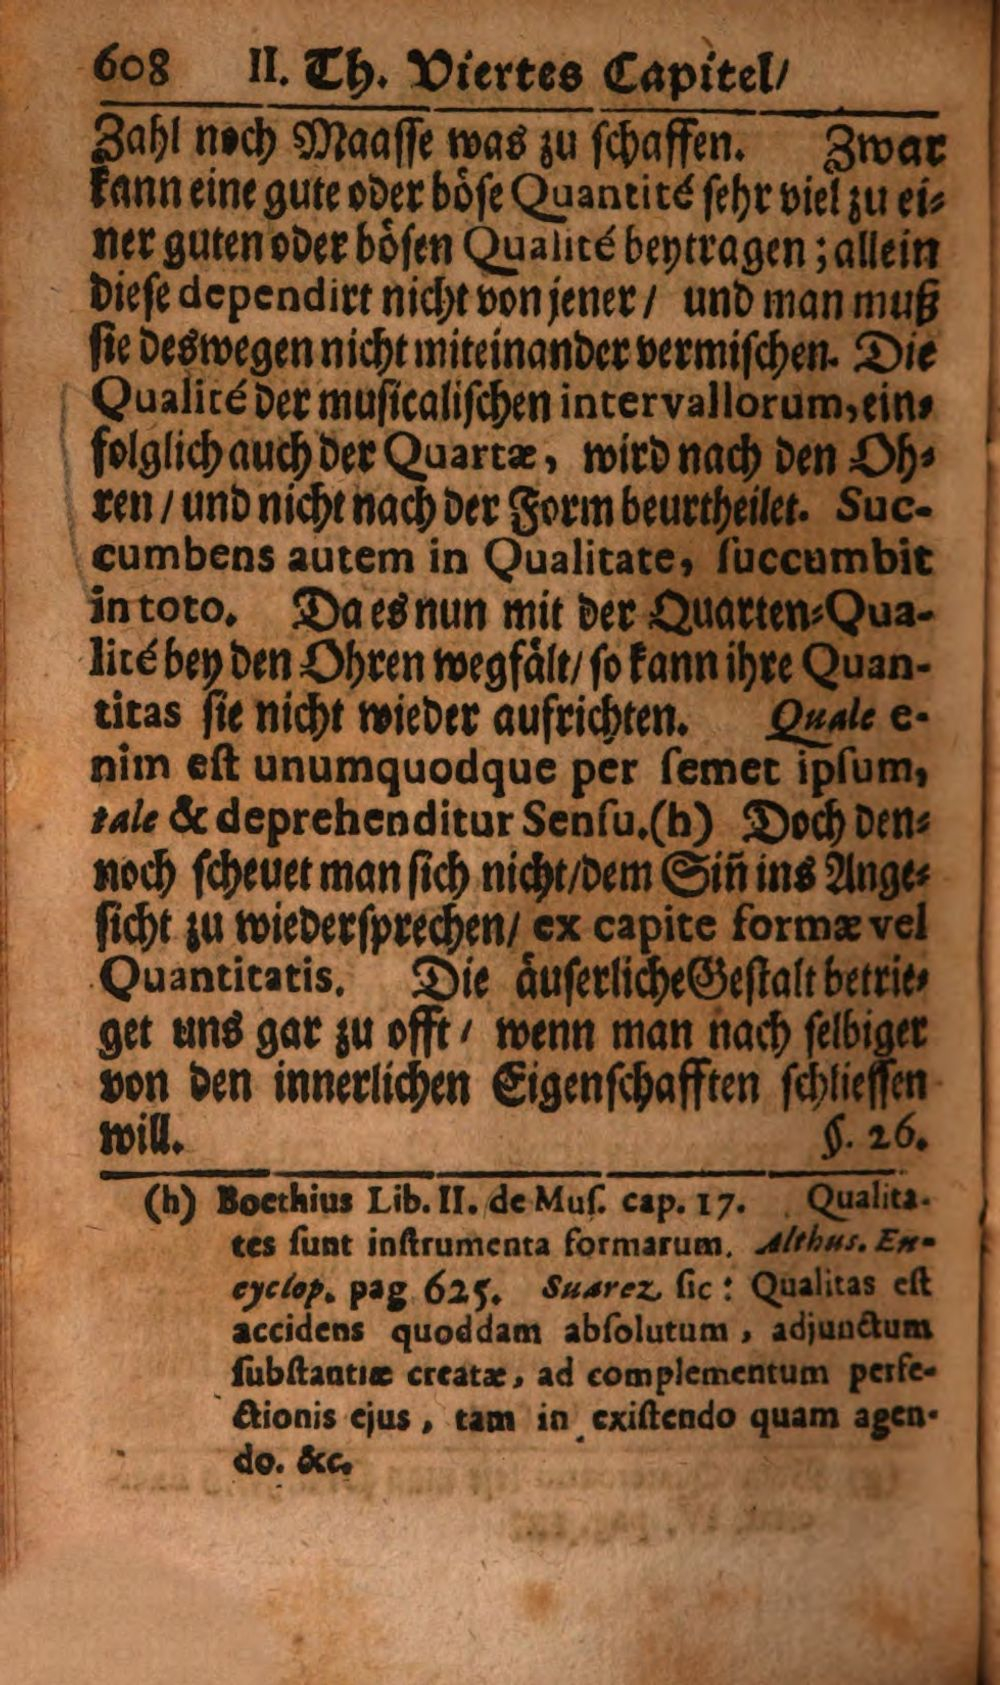 608 II. Th. Viertes Capitel/
Zahl noch Maasse was zu schaffen. Zwar
kann eine gute oder böse Quantité sehr viel zu ei-
ner guten oder bösen Qualité beytragen; allein
diese dependirt nicht von jener / und man muß
sie deswegen nicht miteinander vermischen. Die
Qualité der musicalischen intervallorum, ein-
folglich auch der Quartæ, wird nach den Oh-
ren / und nicht nach der Form beurtheilet. Suc-
cumbens autem in Qualitate, succumbit
in toto. Da es nun mit der Quarten-Qua-
lité bey den Ohren wegfält/ so kann ihre Quan-
titas sie nicht wieder aufrichten. Quale e-
nim est unumquodque per semet ipsum,
tale & deprehenditur Sensu.(h) Doch den-
noch scheuet man sich nicht/dem Sin̄ ins Ange-
sicht zu wiedersprechen/ ex capite formæ vel
Quantitatis. Die äuserliche Gestalt betrie-
get uns gar zu offt / wenn man nach selbiger
von den innerlichen Eigenschafften schliessen
will. §. 26.
(h) Boethius Lib. II. de Mus. cap. 17. Qualita-
tes sunt instrumenta formarum. Althus. En-
cyclop. pag 625. Suarez sic: Qualitas est
accidens quoddam absolutum, adjunctum
substantiæ creatæ, ad complementum perfe-
ctionis ejus, tam in existendo quam agen-
do. &c.